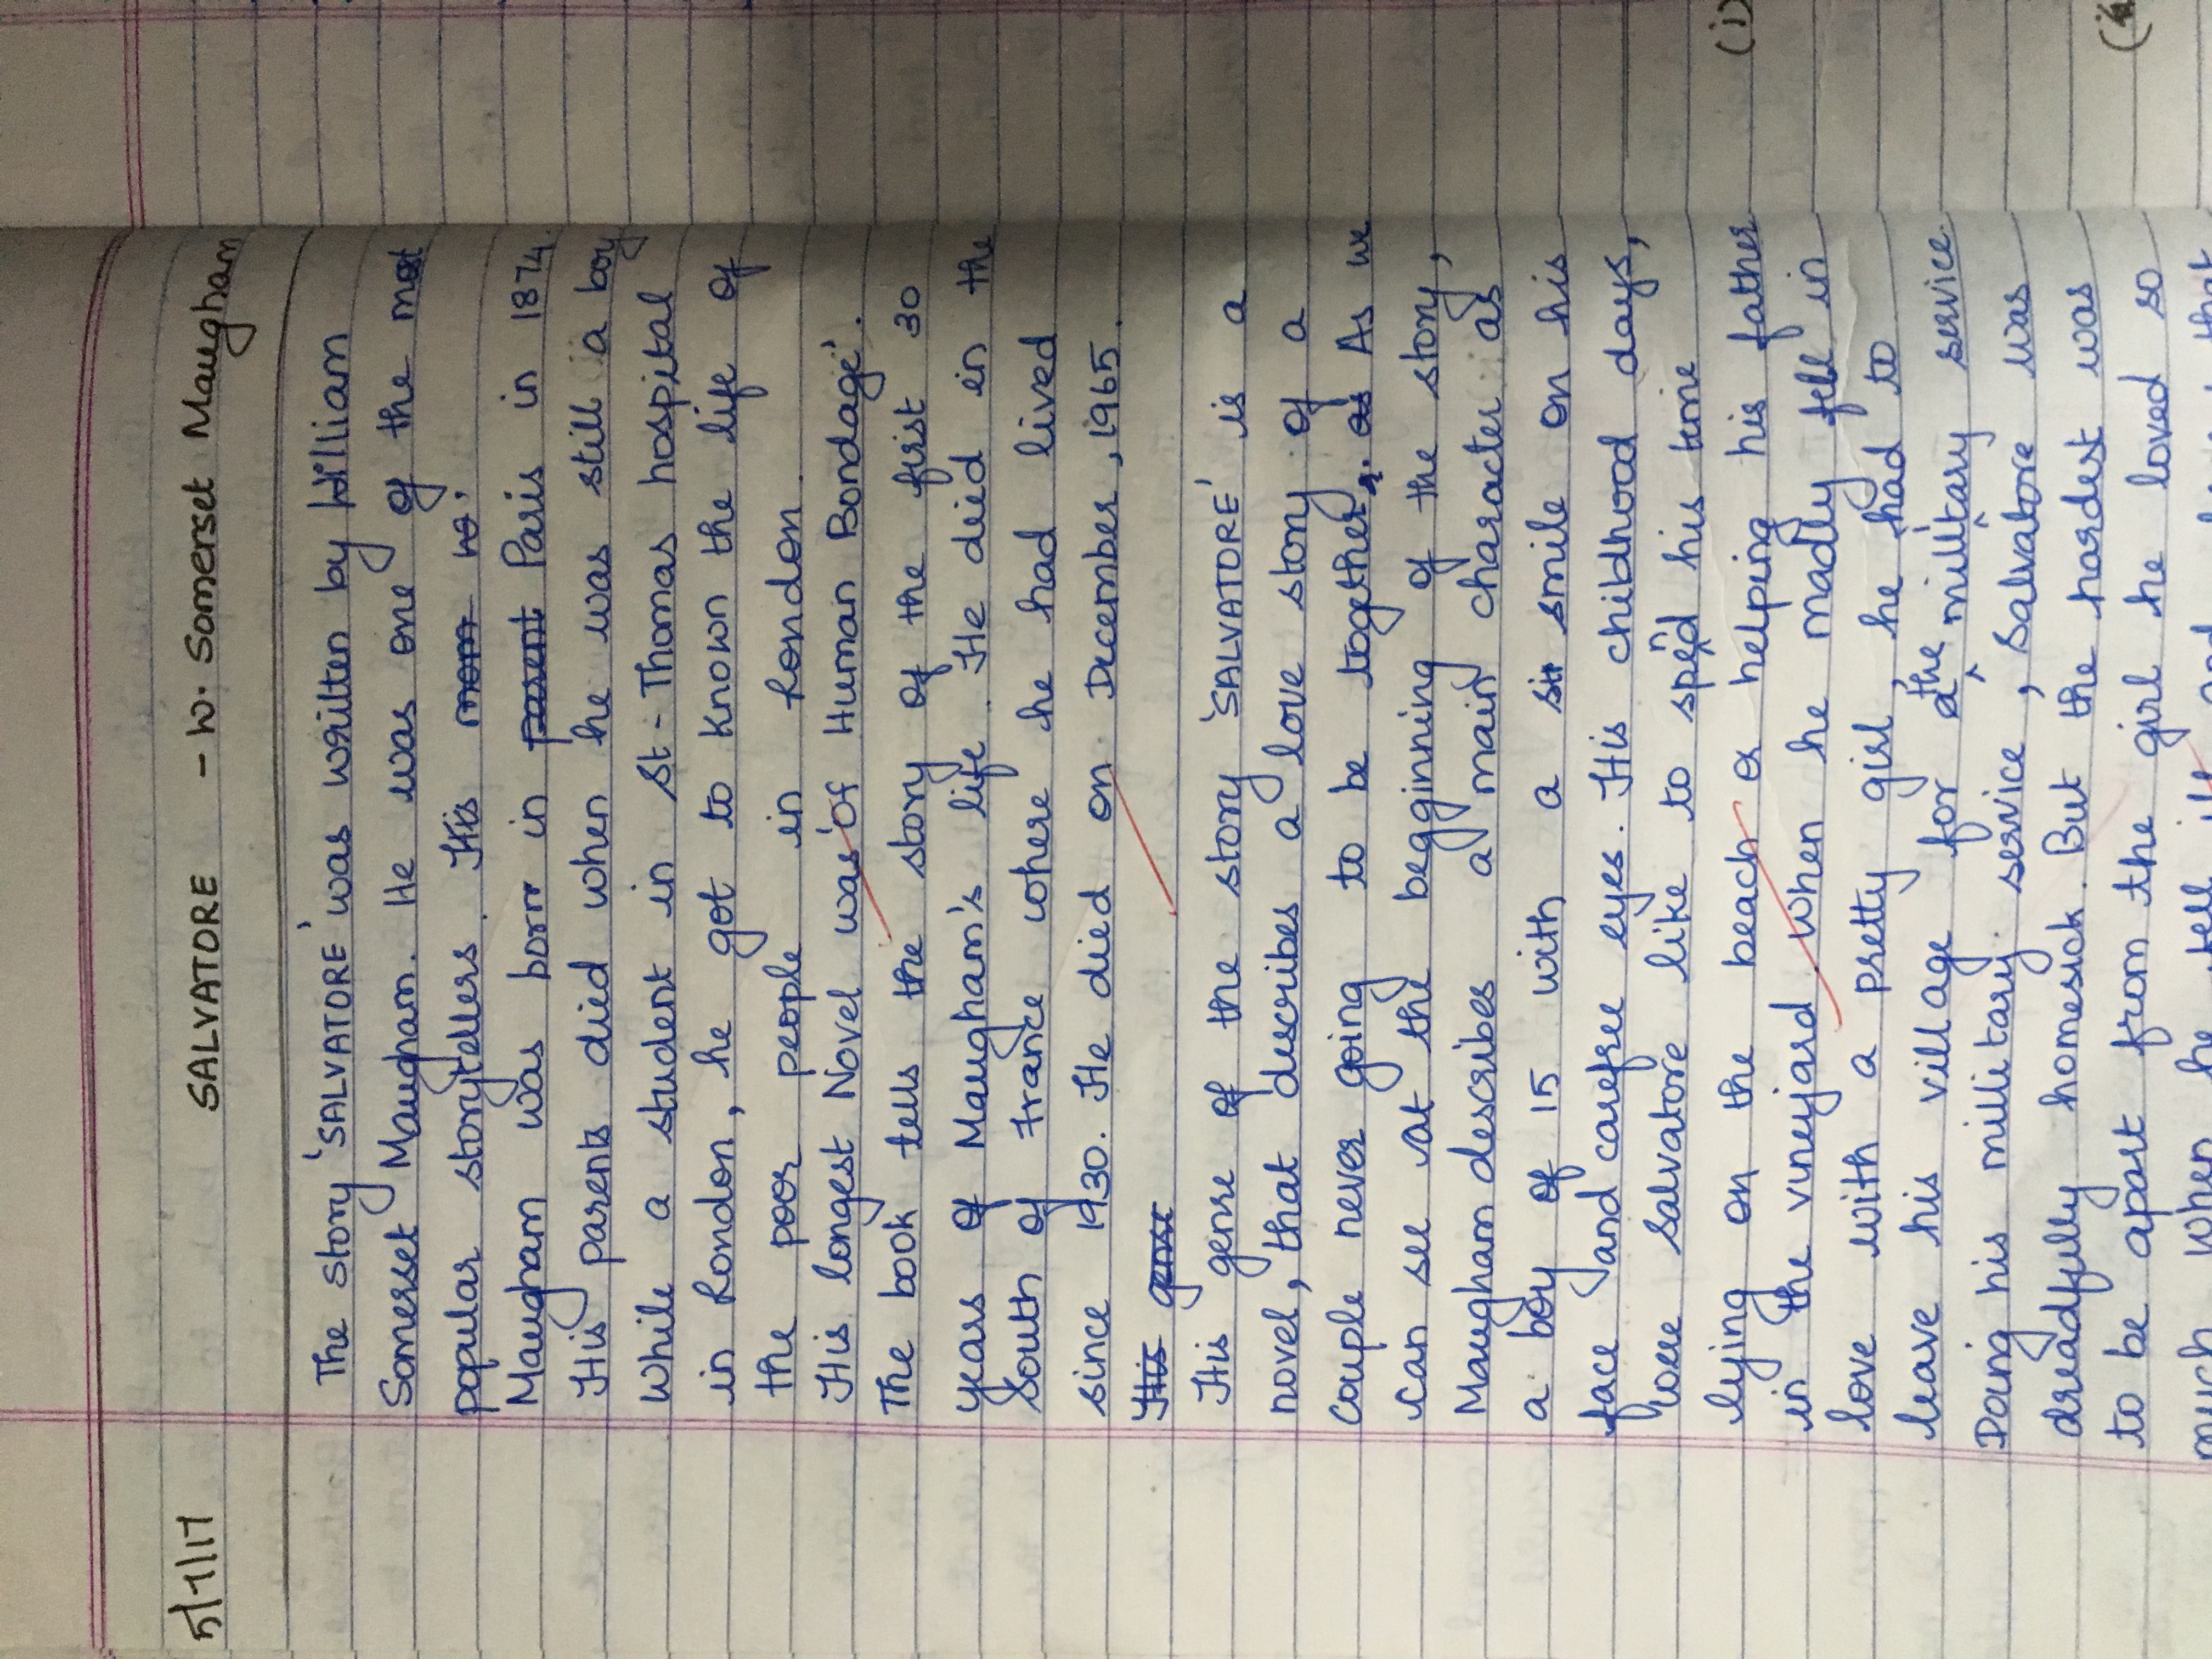 5/7/17 SALVATORE - W. Somerset Maugham
The story 'SALVATORE' was written by William
Somerset Maugham. He was one of the most
popular storytellers. His mom w
Maugham was born in parent Paris in 1874.
His parents died when he was still a boy
While a student in St-Thomas hospital
in London, he got to known the life of
the poor people in London.
His longest Novel was 'Of Human Bondage'.
The book tells the story of the first 30
years of Maugham's life. He died in the
South of France where he had lived
since 1930. He died on December, 1965.
His genre
His genre of the story 'SALVATORE' is a
novel, that describes a love story of a
couple never going to be together. as As we
can see at the begginning of the story,
Maugham describes a main character as
a boy of 15 with a smile on his
face and carefree eyes. His childhood days,
were Salvatore like to spend his time
lying on the beach or helping his father
in the vineyard. When he madly fell in
love with a pretty girl, he had to
leave his village for a the military service.
Doing his millitary service, Salvatore was
dreadfully homesick. But the hardest was
to be apart from the girl he loved so
much when he fell ill and that
(i)